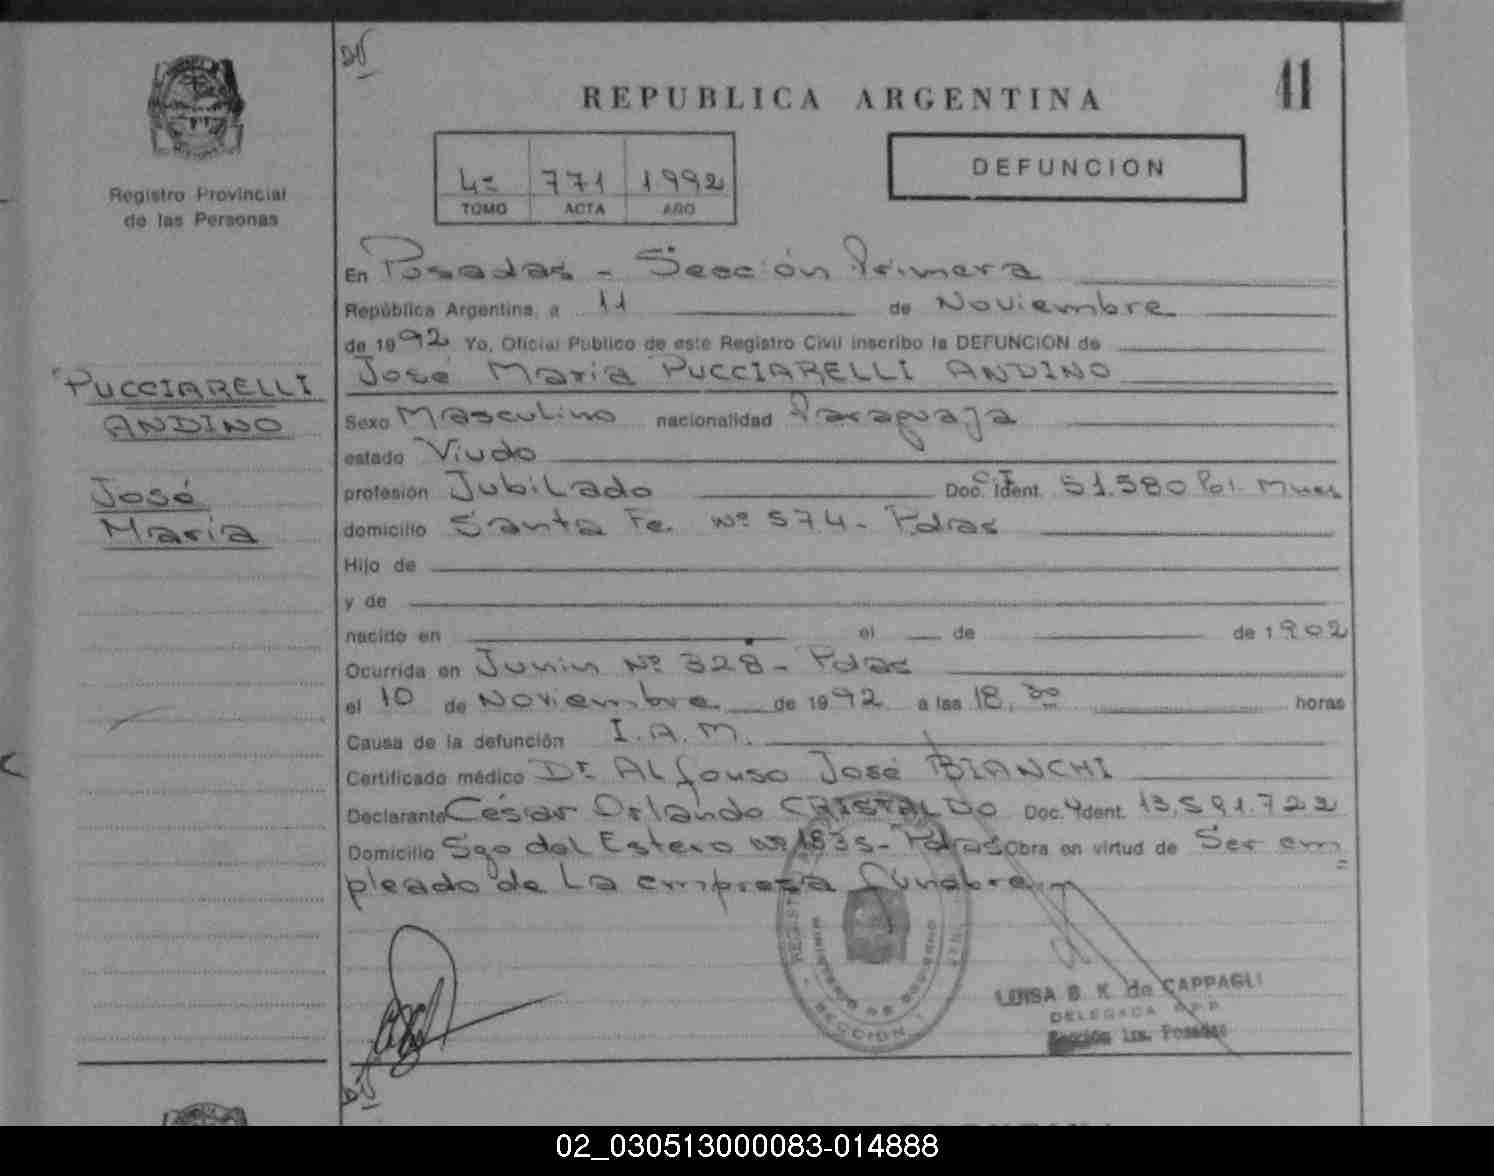 REPUBLICA ARGENTINA
41
Registro Provincial
de las Personas
4º 771 1992
TOMO ACTA AÑO
DEFUNCION
En Posadas - Sección Primera
República Argentina, a 11 de Noviembre
de 1992 Yo, Oficial Público de este Registro Civil inscribo la DEFUNCION de
José Maria PUCCIARELLI ANDINO
PUCCIARELLI
ANDINO
José
Maria
Sexo Masculino nacionalidad Paraguaja
estado Viudo
profesión Jubilado Doc. C.I. Ident. 51.580 Pol. Mnes
domicilio Santa Fe. Nº 574 - Pdas
Hijo de
y de
nacido en el de de 1902
Ocurrida en Junin Nº 328 - Pdas
el 10 de Noviembre de 1992 a las 18,30 horas
Causa de la defunción I.A.M.
Certificado médico Dr. Alfonso José BIANCHI
Declarante César Orlando CRISTALDO Doc. Ident. 13.591.722
Domicilio Sgo del Estero Nº 1835 - Pdas Obra en virtud de Ser em=
pleado de la empresa funebre
MINISTERIO DE GOBIERNO
SECCION 1
LUISA B. K. de CAPPAGLI
DELEGADA R.P.P.
Sección 1ra. Posadas
02_030513000083-014888